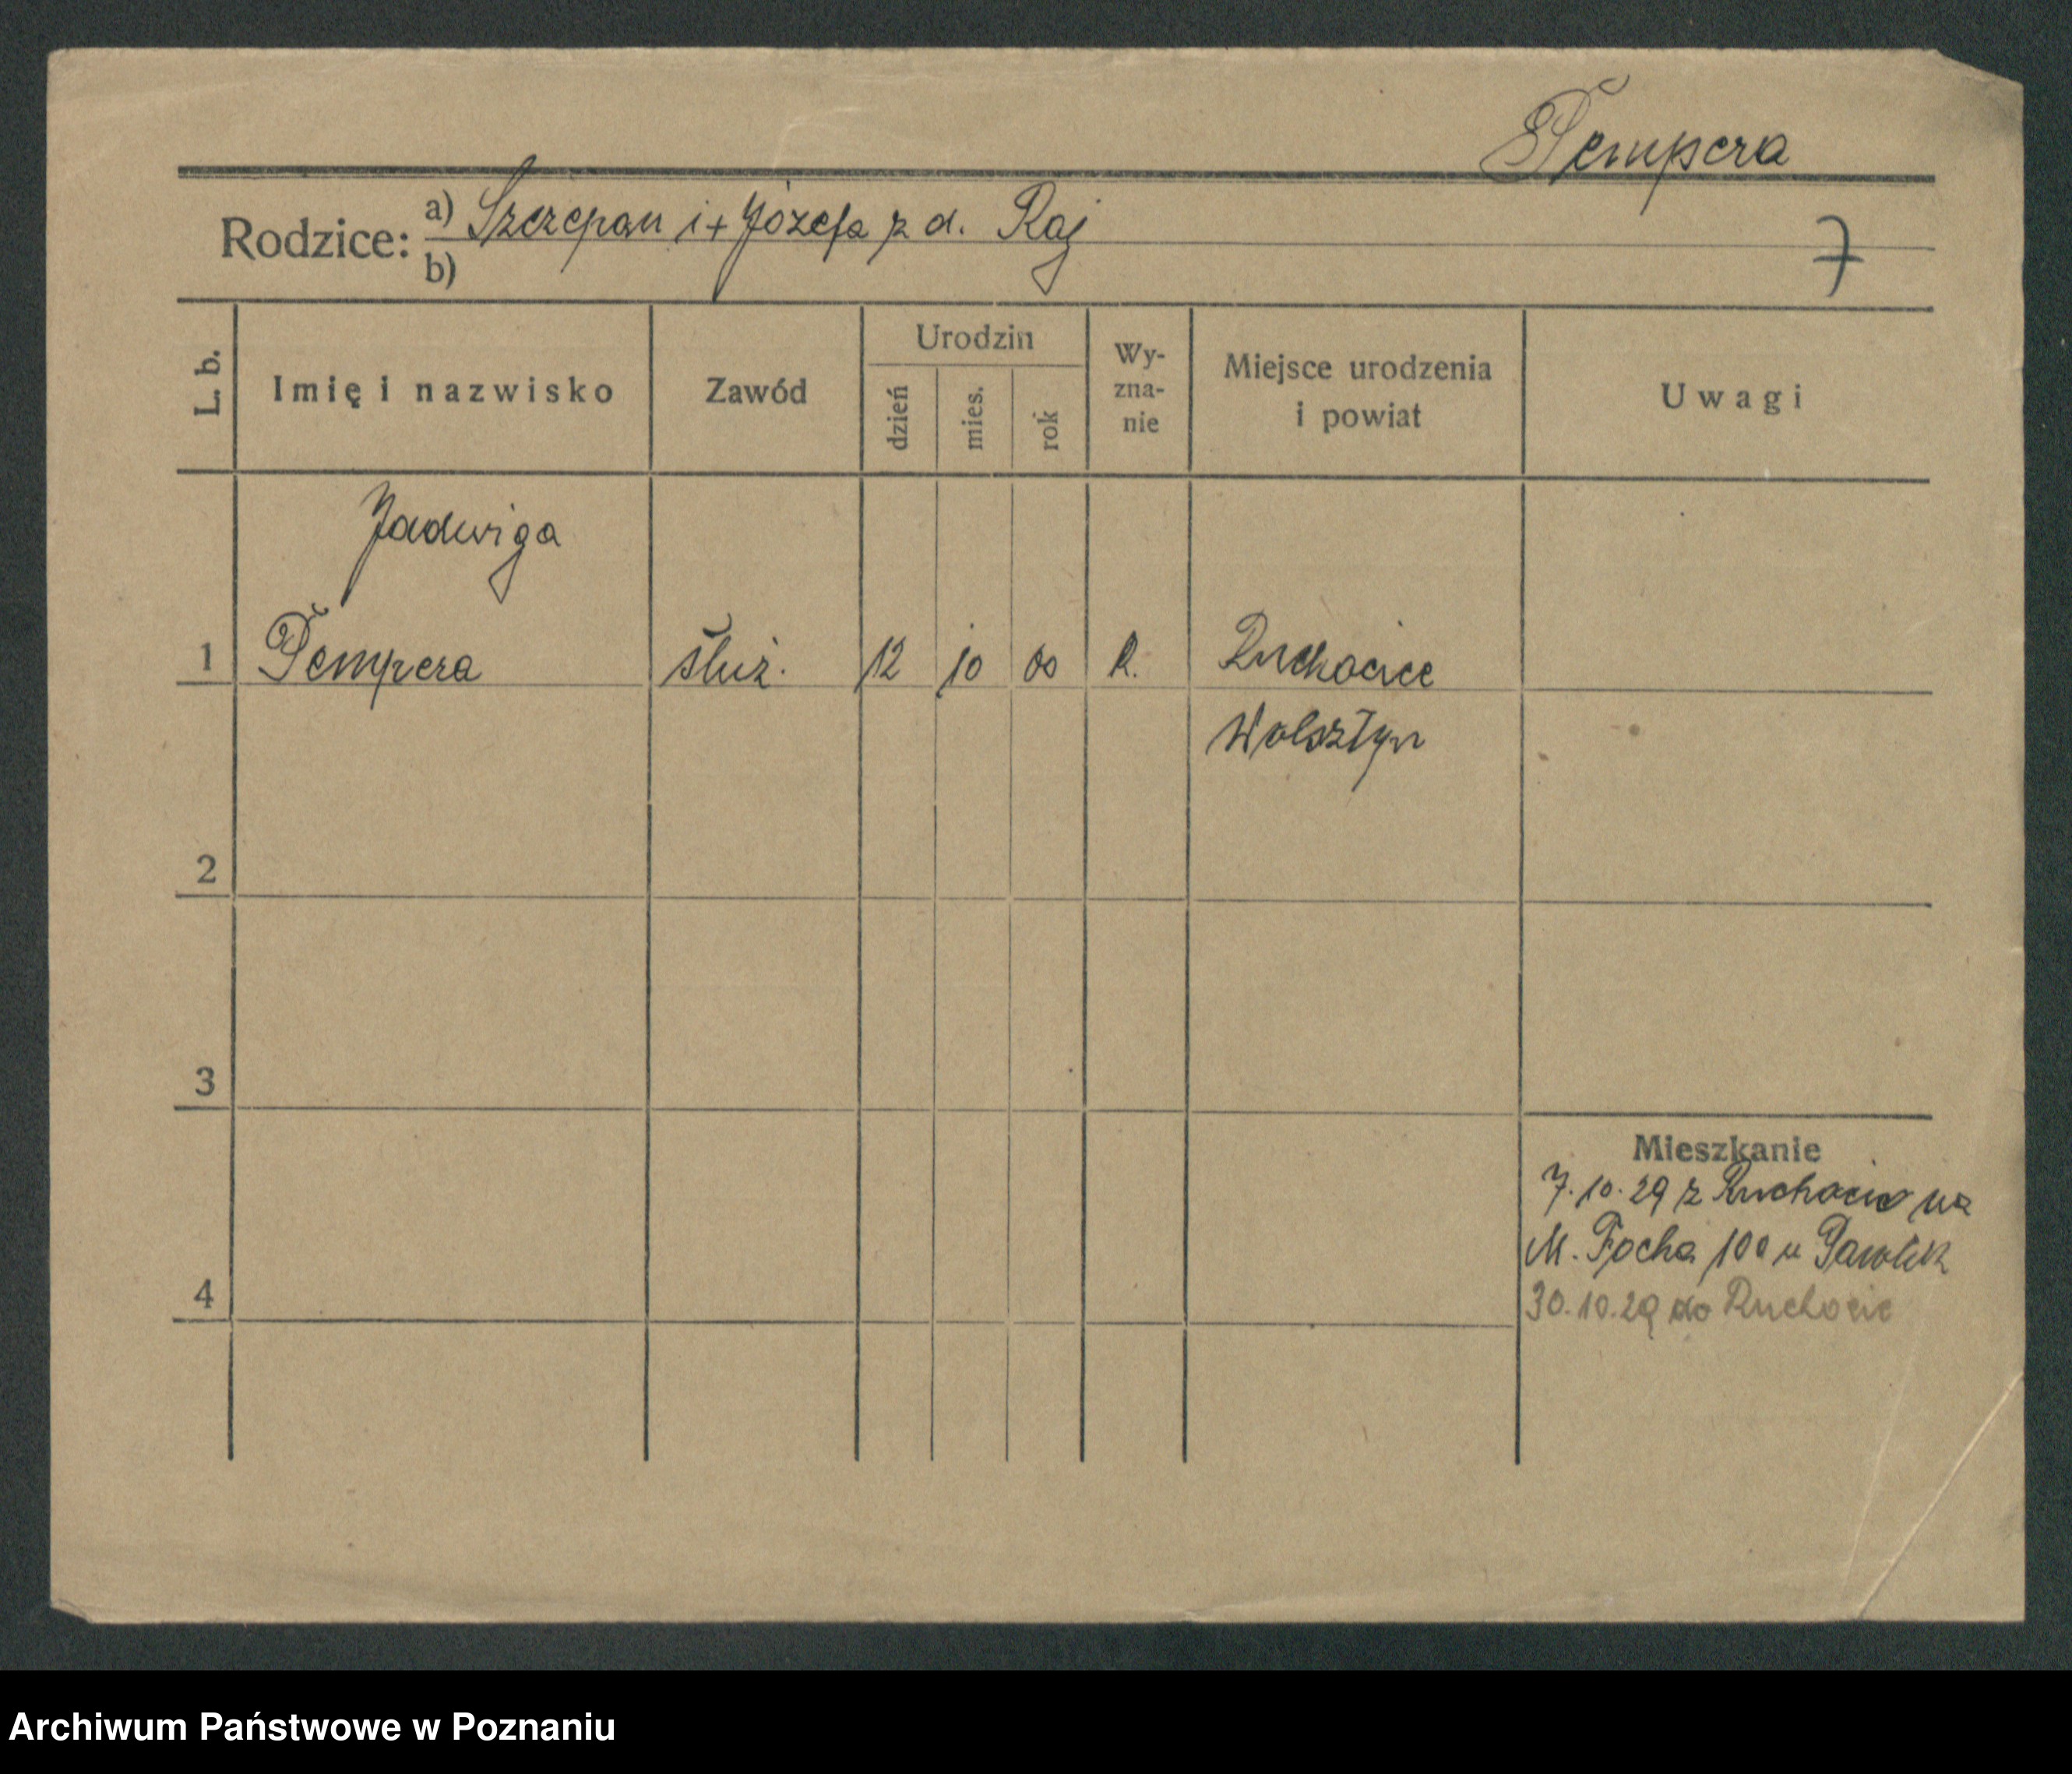 Tempera
Rodzice: a) Szczepan i + Józefa z d. Raj
b)
7
L. b. Imię i nazwisko Zawód Urodzin dzień mies. rok Wy-zna-nie Miejsce urodzenia i powiat Uwagi
Jadwiga
1 Tempera służ. 12 10 00 R. Ruchocice
Wolsztyn
2
3
Mieszkanie
7.10.29 z Ruchocic na
M. Focha 100 u Pawlik
4
30.10.29 do Ruchocic
Archiwum Państwowe w Poznaniu